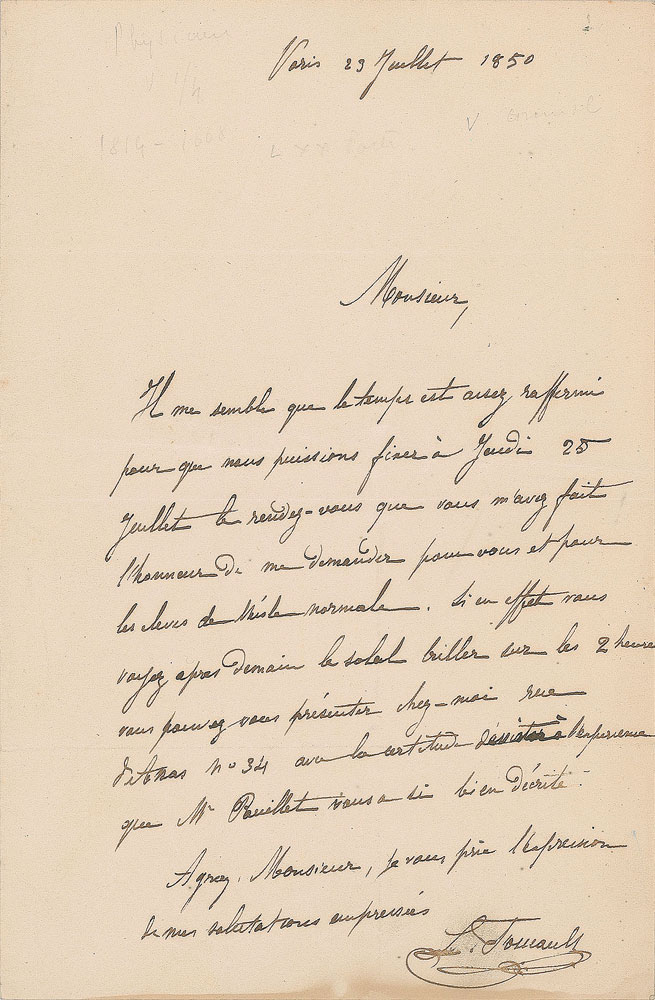 Physicien
1819-1868
Paris 23 Juillet 1850
Monsieur,
Il me semble que le temps est assez raffermi
pour que nous puissions fixer à Jeudi 25
Juillet le rendez-vous que vous m'avez fait
l'honneur de me demander pour vous et pour
les élèves de l'école normale. Si en effet vous
voyez apres demain le soleil briller sur les 2 heures
vous pouvez vous présenter chez-moi rue
d'Assas N° 34 avec la certitude d'assister à l'expérience
que Mr Pouillet vous a si bien décrite.
Agréez, Monsieur, je vous prie l'expression
de mes salutations empressées
L. Foucault